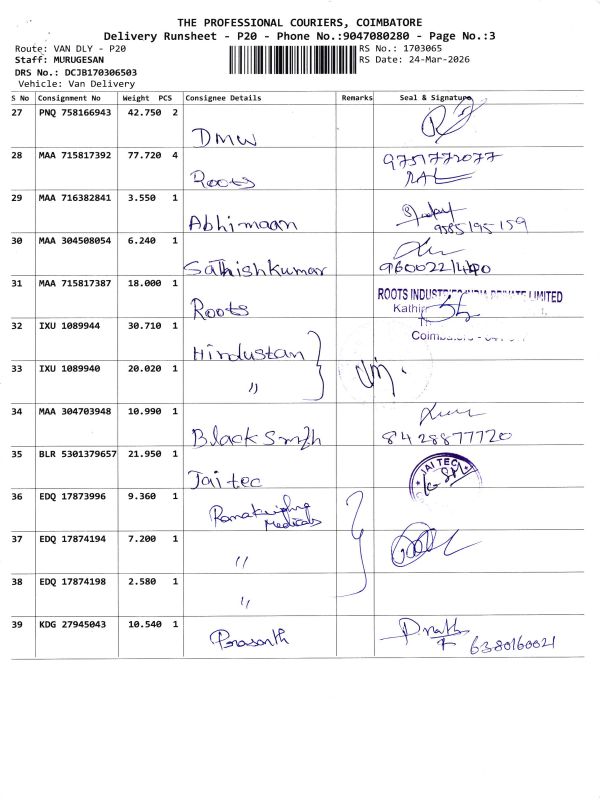 THE PROFESSIONAL COURIERS, COIMBATORE
Delivery Runsheet - P20 - Phone No.:9047080280 - Page No.:3
Route: VAN DLY - P20 RS No.: 1703065
Staff: MURUGESAN RS Date: 24-Mar-2026
DRS No.: DCJB170306503
Vehicle: Van Delivery
S No Consignment No Weight PCS Consignee Details Remarks Seal & Signature
27 PNQ 758166943 42.750 2
DMW
28 MAA 715817392 77.720 4 9751772077
Roots
29 MAA 716382841 3.550 1
Abhimaan 9585195159
30 MAA 304508054 6.240 1
Sathishkumar
31 MAA 715817387 18.000 1 ROOTS INDUSTRIES INDIA PRIVATE LIMITED
Roots
32 IXU 1089944 30.710 1
Hindustan
33 IXU 1089940 20.020 1
"
34 MAA 304703948 10.990 1
Blacksmith 8428877720
35 BLR 5301379657 21.950 1 JAI TEC
Jaitec
36 EDQ 17873996 9.360 1
Ramakrishna
Medicals
37 EDQ 17874194 7.200 1
"
38 EDQ 17874198 2.580 1
"
39 KDG 27945043 10.540 1
Prasanth 6380160021